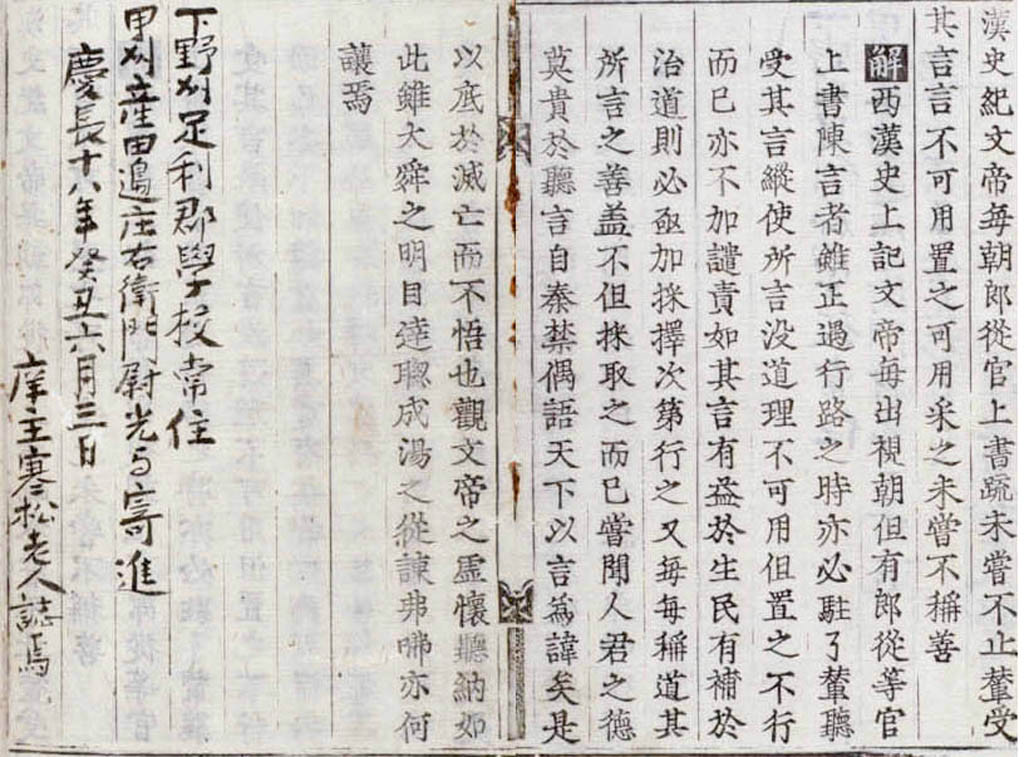 漢史紀文帝每朝郎從官上書疏未嘗不止輦受
其言言不可用置之可用采之未嘗不稱善
解西漢史上記文帝每出視朝但有郎從等官
上書陳言者雖正過行路之時亦必駐了輦聽
受其言縱使所言没道理不可用但置之不行
而已亦不加譴責如其言有益於生民有補於
治道則必亟加採擇次第行之又每每稱道其
所言之善盖不但採取之而已嘗聞人君之德
莫貴於聽言自秦禁偶語天下以言為諱矣是
以底於滅亡而不悟也觀文帝之虛懷聽納如
此雖大舜之明目達聰成湯之從諫弗咈亦何
讓焉
下野刕足利郡學校常住
甲刕産田邉庄右衛門尉光与寄進
慶長十八年癸丑六月三日
庠主寒松老人誌焉